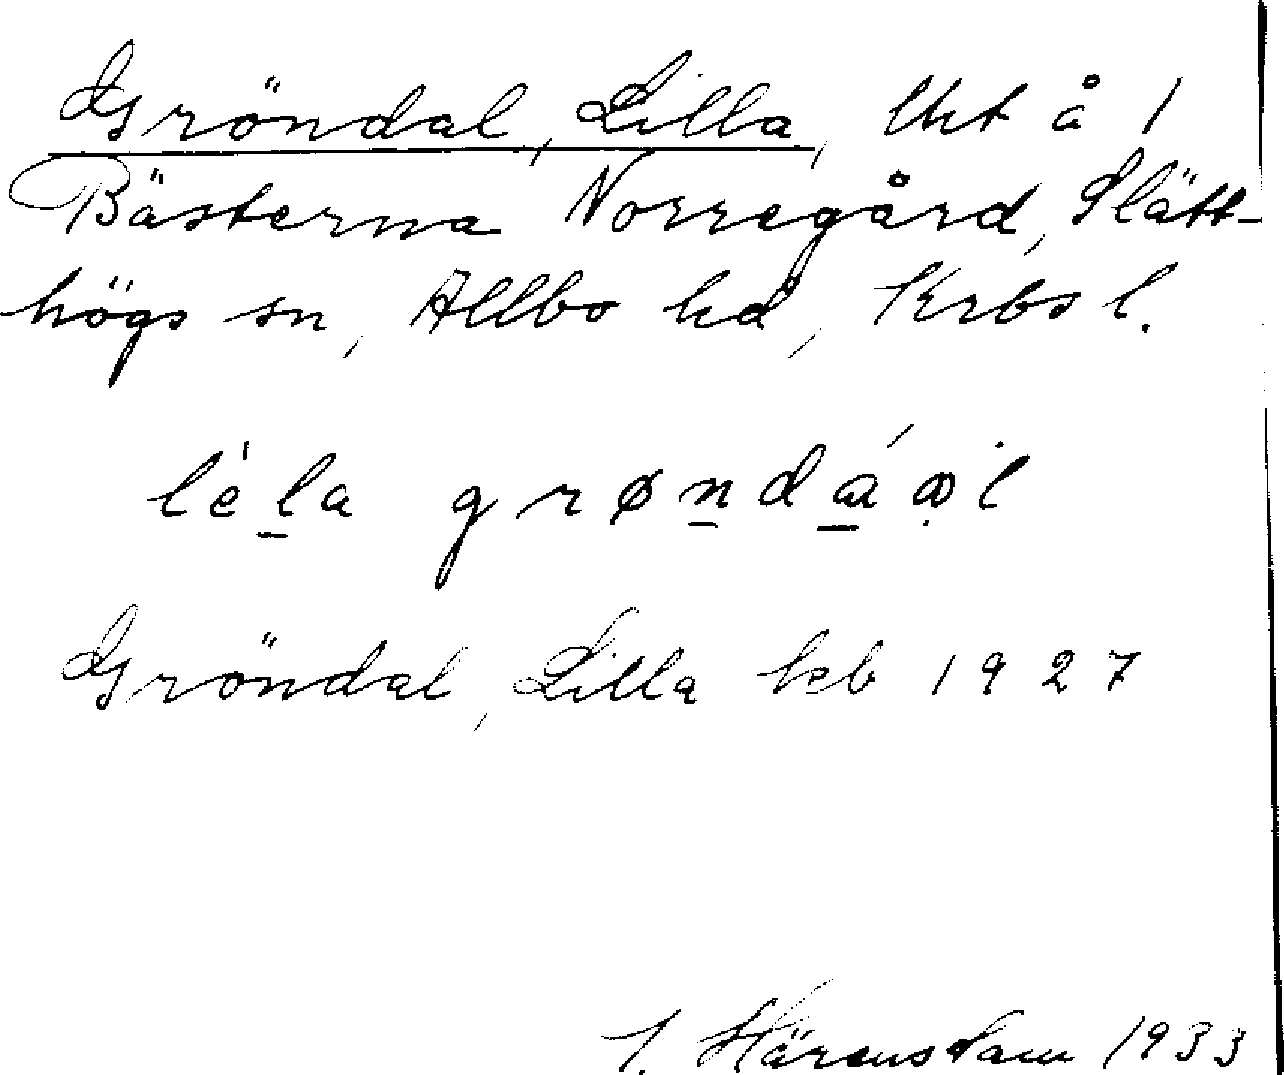 Gröndal, Lilla, lht å 1
Bästerna Norregård, Slätt-
högs sn, Allbo hd, Krbs l.
lèla grøndáal
Gröndal, Lilla lzb 1927
1933